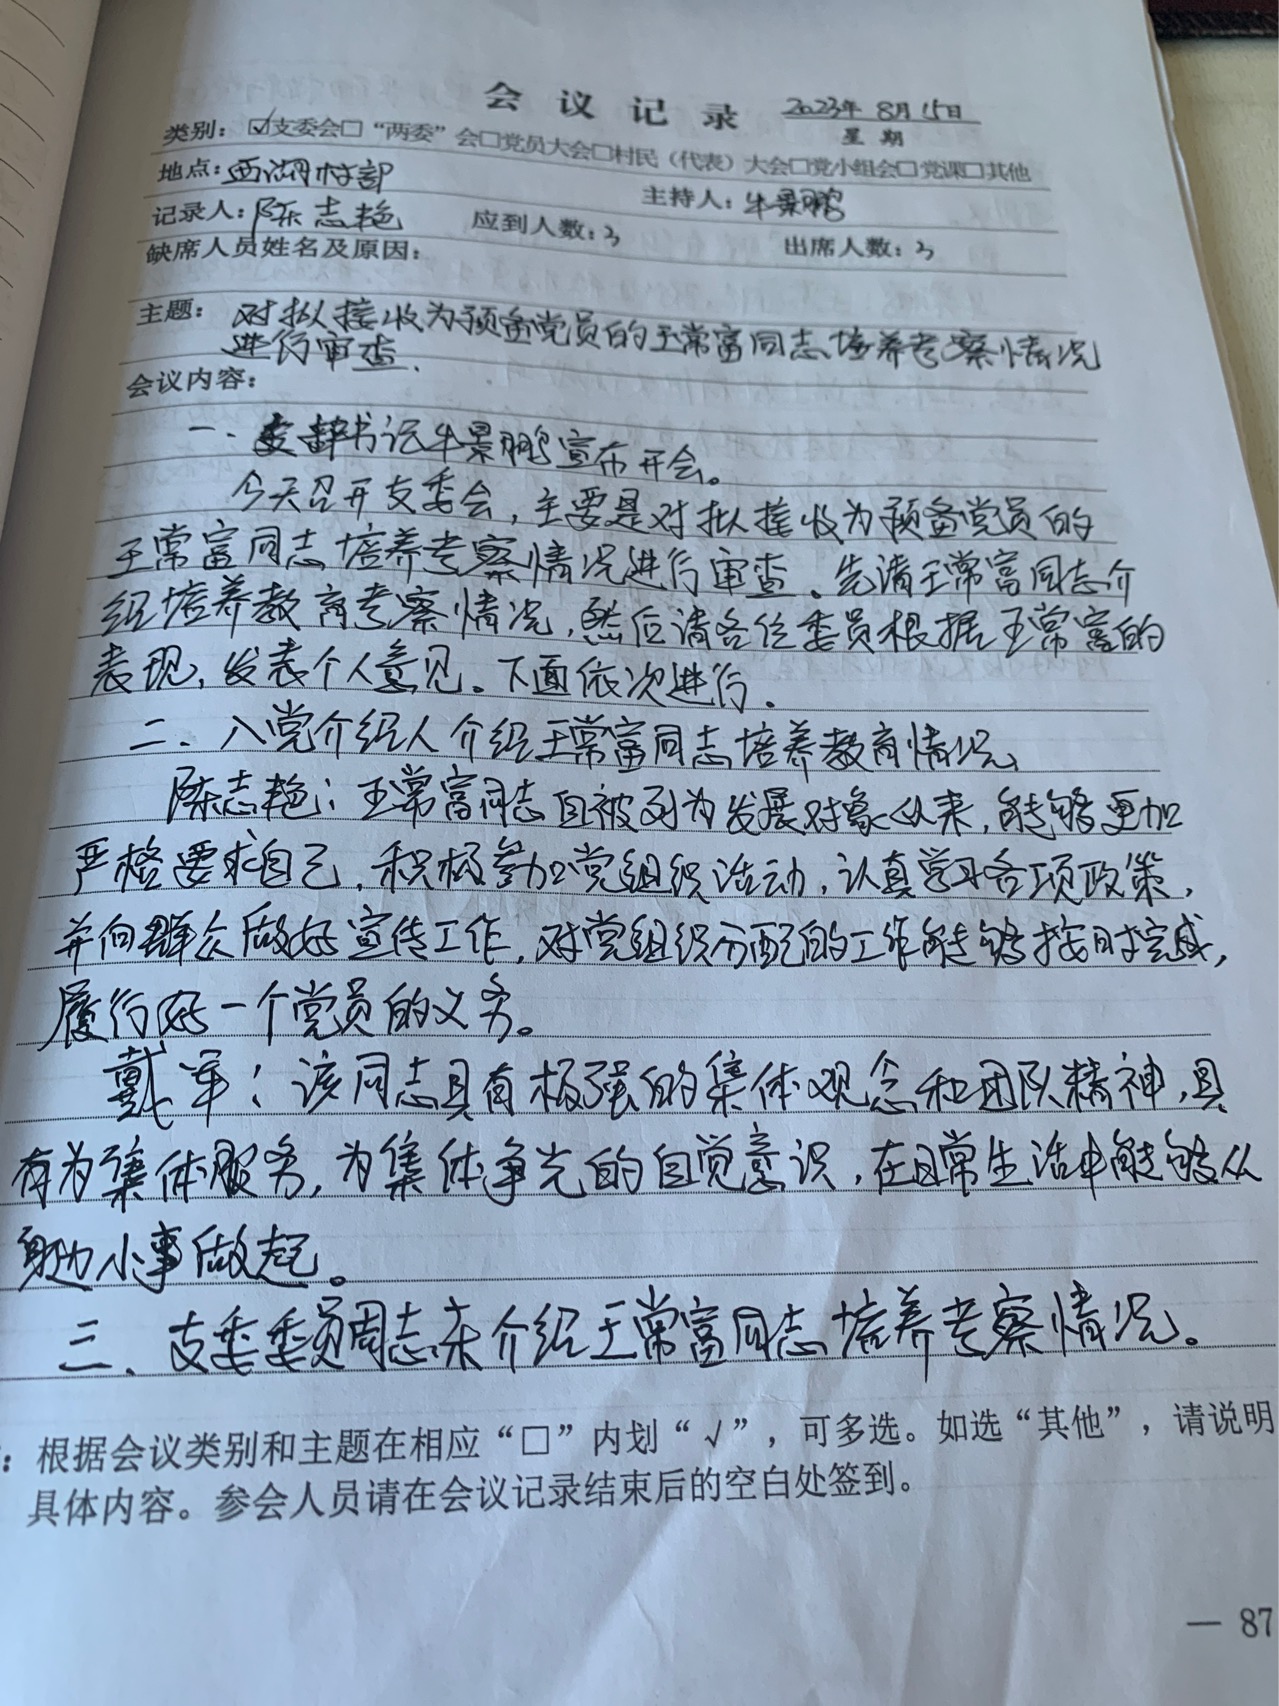 会议记录 2023年8月15日
星期
类别：☑支委会□“两委”会□党员大会□村民（代表）大会□党小组会□党课□其他
地点：西湖村部 主持人：牛景鹏
记录人：陈志艳 应到人数：3 出席人数：3
缺席人员姓名及原因：
主题：对拟接收为预备党员的王常富同志培养考察情况
进行审查.
会议内容：
一、支部书记牛景鹏宣布开会。
今天召开支委会，主要是对拟接收为预备党员的
王常富同志培养考察情况进行审查。先请王常富同志介
绍培养教育考察情况，然后请各位委员根据王常富的
表现，发表个人意见。下面依次进行。
二、入党介绍人介绍王常富同志培养教育情况、
陈志艳：王常富同志自被列为发展对象以来，能够更加
严格要求自己，积极参加党组织活动，认真学习各项政策，
并向群众做好宣传工作，对党组织分配的工作能够按时完成，
履行好一个党员的义务。
戴军：该同志具有极强的集体观念和团队精神，具
有为集体服务，为集体争光的自觉意识，在日常生活中能够从
身边小事做起。
三、支委委员周志东介绍王常富同志培养考察情况。
：根据会议类别和主题在相应“□”内划“√”，可多选。如选“其他”，请说明
具体内容。参会人员请在会议记录结束后的空白处签到。
— 87